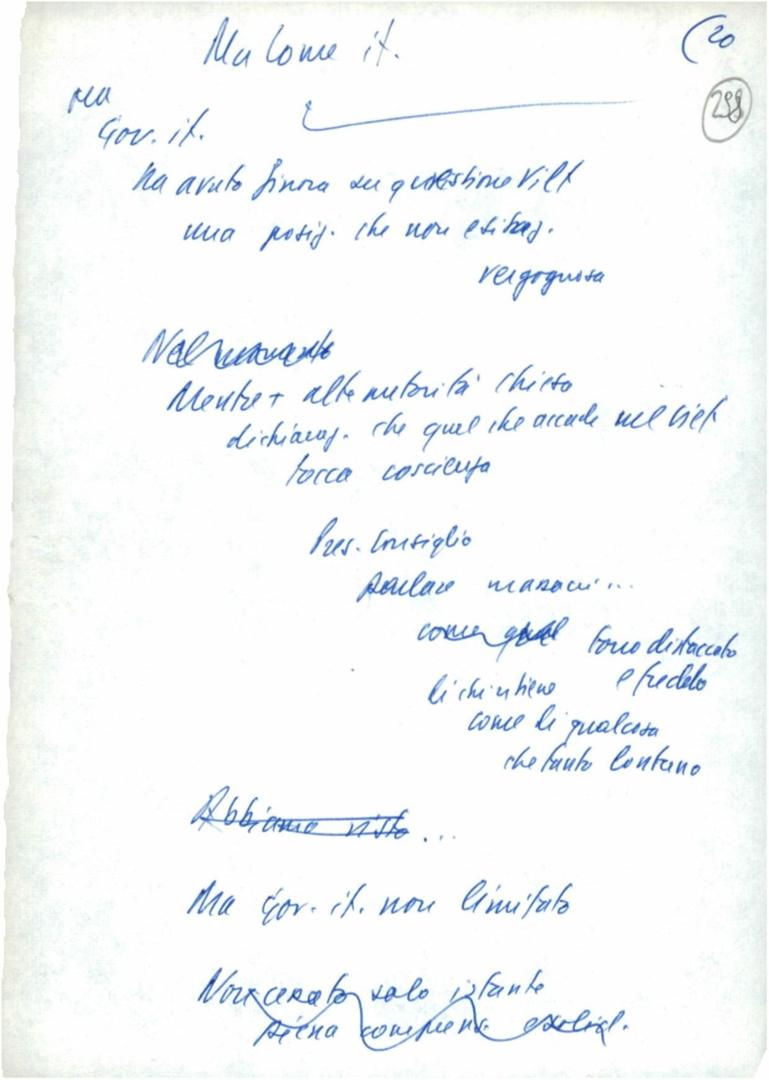 Ma come it.
(20
298
Ma
Gov. it.
ha avuto finora su questione Viet
una posiz. che non esitaz.
vergognosa
Nel momento
Mentre + alte autorità chiesa
dichiaraz. che quel che accade nel Viet
tocca coscienza
Pres. Consiglio
parlare massacri...
come quel tono distaccato
e freddo
di chi ritiene
come di qualcosa
che tanto lontano
Abbiamo visto ...
Ma Gov. it. non limitato
Non cessato solo istante
piena comprens. esplicit.